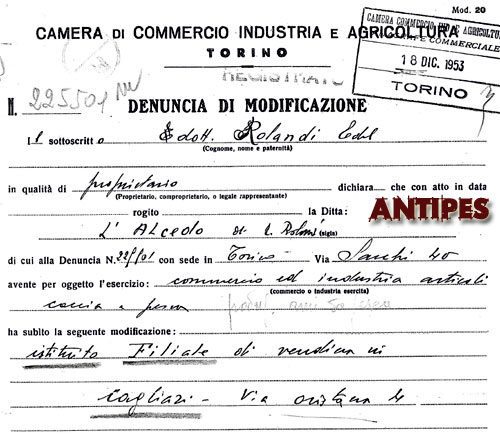 Mod. 20
CAMERA DI COMMERCIO INDUSTRIA E AGRICOLTURA
TORINO
CAMERA COMMERCIO IND. E AGRICOLTUR
E COMMERCIALE
18 DIC. 1953
TORINO
REGISTRATO
N. 225501
DENUNCIA DI MODIFICAZIONE
Il sottoscritto dott. Rolandi
(Cognome, nome e paternità)
in qualità di proprietario dichiara che con atto in data
(Proprietario, comproprietario, o legale rappresentante)
ANTIPES
rogito la Ditta:
L' Alcedo di (sigla)
di cui alla Denuncia N. con sede in Torino Via Sacchi 40
avente per oggetto l'esercizio: commercio ed industria articoli
(commercio o industria esercita)
caccia e pesca
ha subito la seguente modificazione:
istituito Filiale di vendita in
Cagliari - Via